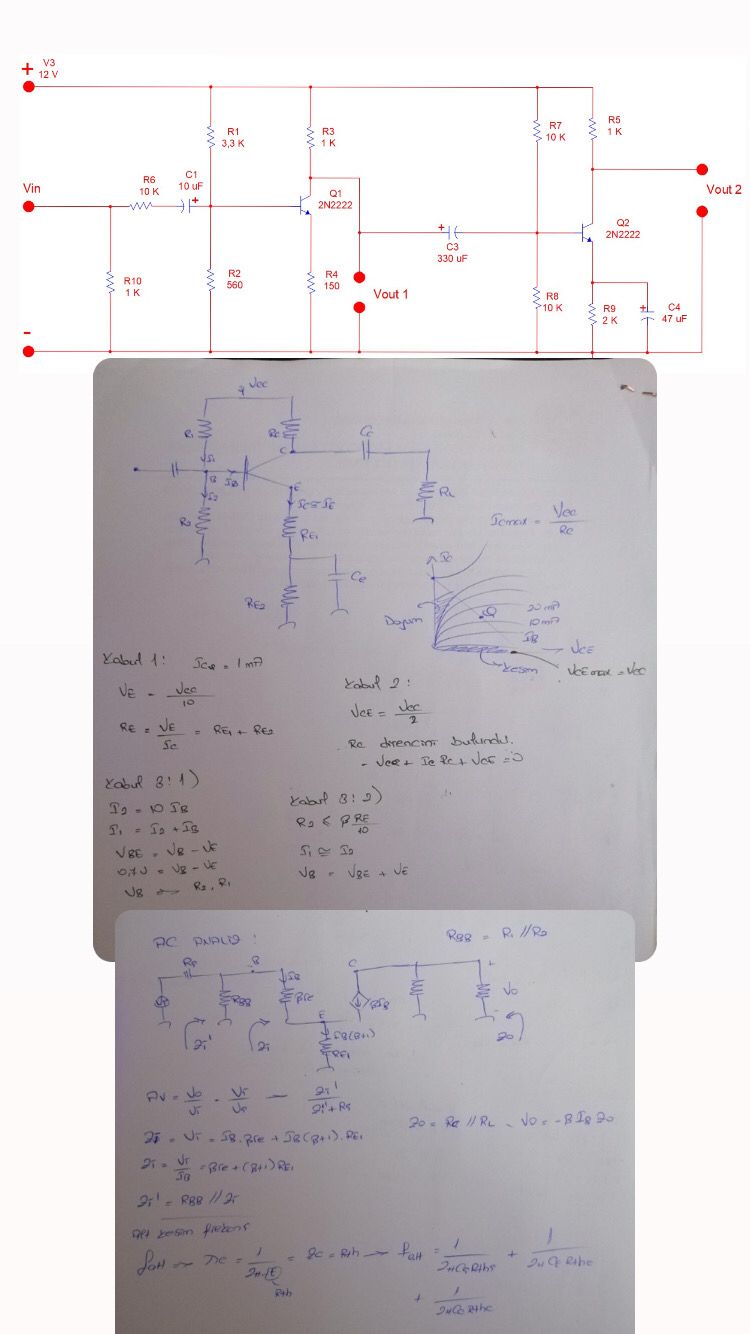 + V3
12 V
R1
3,3 K
R3
1 K
R7
10 K
R5
1 K
Vin
R6
10 K
C1
10 uF
+
Q1
2N2222
Vout 2
+
C3
330 uF
Q2
2N2222
R10
1 K
R2
560
R4
150
Vout 1
R8
10 K
R9
2 K
+
C4
47 uF
-
Vcc
R1
Rc
Cc
C
I1
B
IB
I2
E
R2
Ic≅IE
RL
RE1
Icmax = Vcc/Rc
Ic
RE2
Ce
Doyum
Q
20 mA
10 mA
IB
VCE
kesim
VCEmax = Vcc
Kabul 1: IcQ = 1 mA
VE = Vcc/10
RE = VE/Ic = RE1 + RE2
Kabul 2:
VCE = Vcc/2
Rc direncini bulundu.
- Vcc + Ic Rc + VCE = 0
Kabul 3: 1)
I2 = 10 IB
I1 = I2 + IB
VBE = VB - VE
0,7V = VB - VE
VB R2, R1
Kabul 3: 2)
R2 ≤ β RE/10
I1 ≅ I2
VB = VBE + VE
AC ANALİZ :
RBB = R1 // R2
B
IB
βre
RBB
C
βIB
+
Vo
-
Zi'
Zi
E
IB(β+1)
RE1
Zo
Av = Vo/Vi . Vi/Vs
Zi'/Zi'+Rs
Zo = Rc // RL Vo = -β IB Zo
Vi = IB.βre + IB(β+1).RE1
Zi = Vi/IB = βre + (β+1)RE1
Zi' = RBB // Zi
Alt kesim frekans